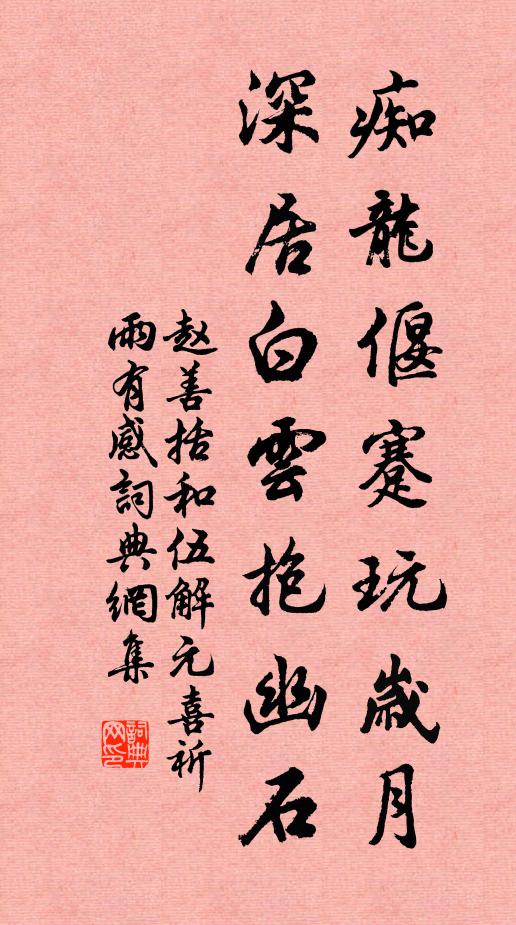 痴龍偃蹇玩歲月
深居白雲抱幽石
赵善括和伍解元喜祈
雨有感詞典網集
詞典网印